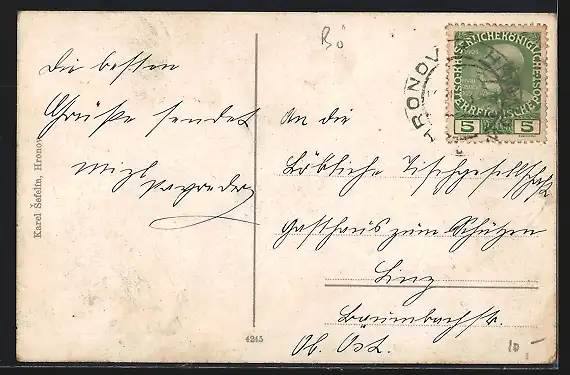 Bö
Die besten
Grüße sendet
Karel Šefelín, Hronov
HRONOV
KAISERLICHEKÖNIGLICHE
ÖSTERREICHISCHE POST
1908
5 5
An die
Löbliche Tischgesellschaft
Gasthaus zum Schützen
Linz
Baumbachstr.
Ob. Öst.
4245
10.-